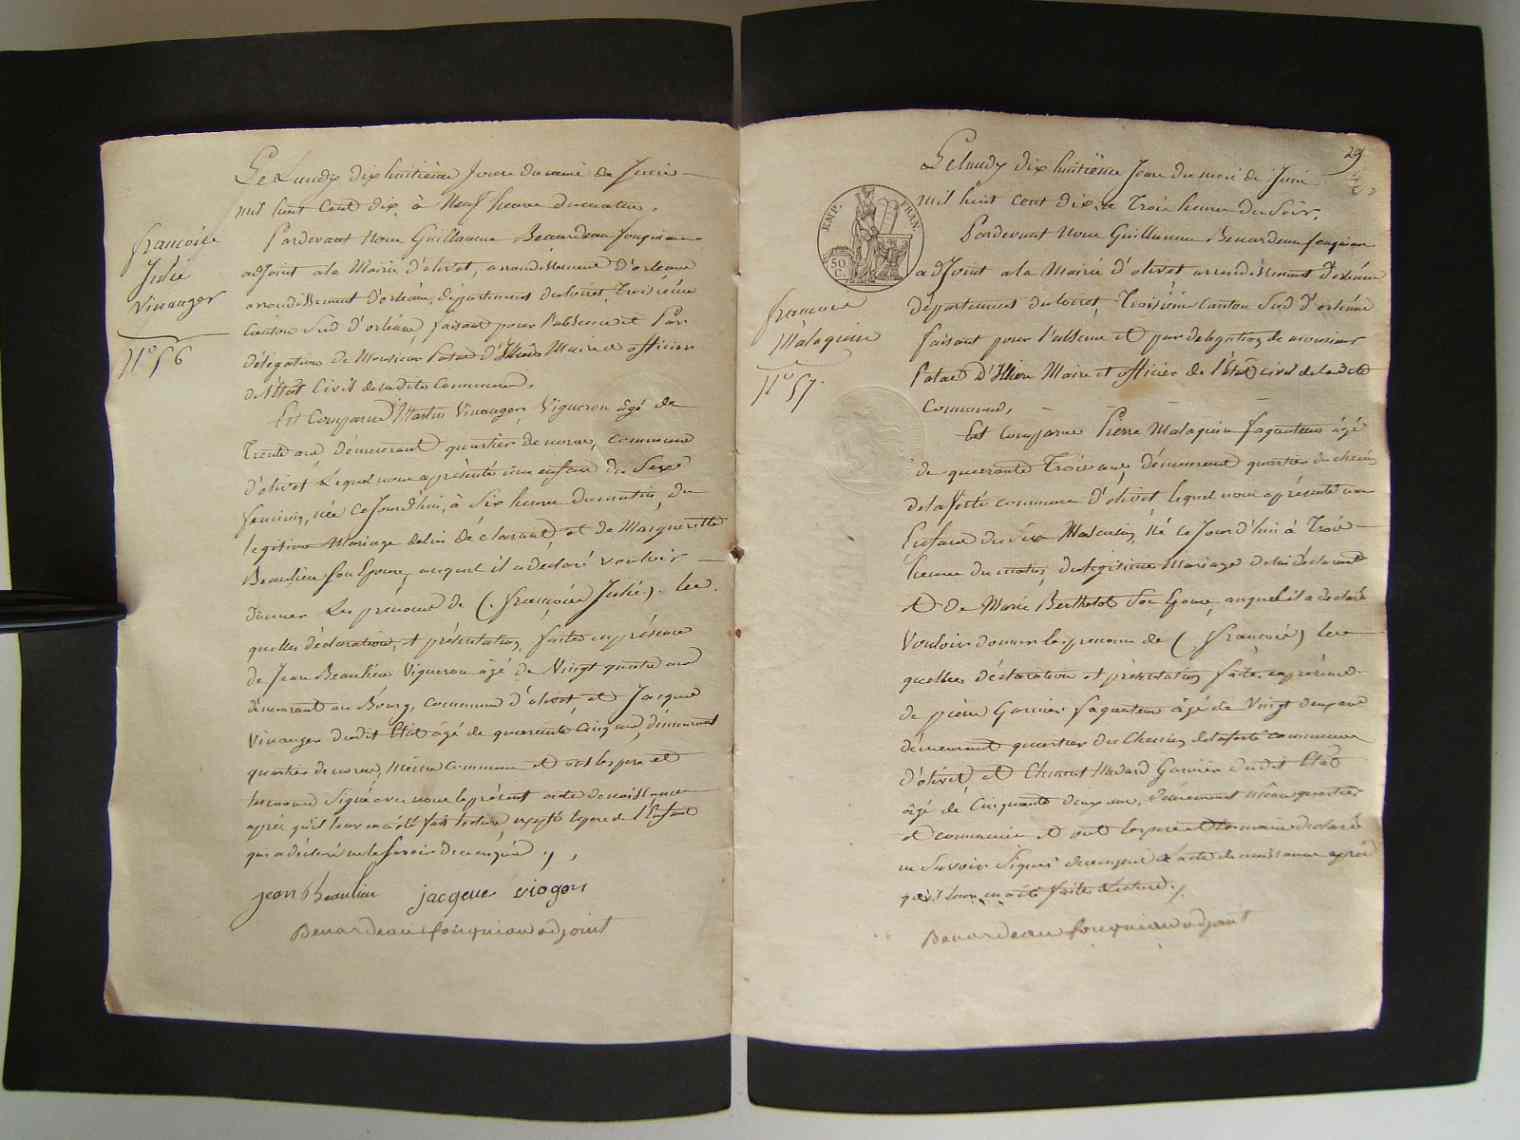 Le Lundy dix huitième Jour du mois de Juin
mil huit cent dix, à Neuf heure du matin,
françoise
Julie
Vinauger
N° 56
Pardevant nous Guillaume Benardeau fouqniau
adjoint a la Mairie d'olivet, arrondissement d'orléans
arrondissement d'orléans, département du loiret, Troisième
Canton Sud d'orléans, faisant pour l'absence et Par
délégation de Monsieur Patas d'Illiers Maire et officier
de l'état Civil de la dite Commune,
Est Comparu Martin Vinauger, Vigneron âgé de
Trente ans démeurant quartier de , commune
d'olivet Lequel nous a présenté une enfant du Sexe
feminin, née ce Jourd'hui, à Six heure du matin, du
legitime Mariage de lui déclarant, et de Marguerittte
Beaulieu son Epouse, auquel il a declaré vouloir
donner Les prénoms de (françoise Julie). les
quelles déclaration, et présentation, faites en présence
de Jean Beaulieu Vigneron âgé de Vingt quatre ans
démeurant au Bourg, commune d'olivet et Jacque
Vinauger dudit Etat âgé de quarante Cinq ans, démeurant
quartier de , même Commune et ont les pere et
temoins Signé avec nous le présent acte de naissance
après qu'il leur en a été fait lecture, excepté le pere de l'Enfant
qui a déclaré ne le savoir de ce enquis,
jean Beaulieu jacque viogor
Benardeau fouqniau adjoint
29
Le lundy dix huitième Jour du mois de Juin
mil huit cent dix, a Trois heure du Soir,
EMP. FRAN.
50
C.
francois
Malaquin
N° 57
Pardevant nous Guillaume Benardeau fouqniau
adjoint a la Mairie d'olivet arrondissement d'orléans
département du loiret, Troisième canton Sud d'orléans
faisant pour l'absence et par delegation de monsieur
Patas d'Illiers Maire et officier de l'état civil de la dite
Commune,
Est Comparu Pierre Malaquin faquteur âgé
de quarante Trois ans, démeurant quartier du chemin
de la ferté commune d'olivet, lequel nous a présenté un
Enfant du séx Masculin, Né ce Jour d'hui à Trois
heure du matin, du légitime mariage de lui déclarant
et de Marie Berthelot son Epouse, auquel il a déclaré
Vouloir donner les prenoms de (francois) les
quelles déclaration et présentation faites en présence
de pierre Garnier faquteur âgé de Vingt deux ans
démeurant quartier du Chemin de la ferté commune
d'olivet, et Clement Medard Garnier dudit Etat
âgé de Cinquante deux ans, démeurant même quartier
et commune et ont les pere et temoins declaré
ne savoir Signer de ce enquis l'acte de naissance après
qu'il leur en a été faite lecture,
Benardeau fouqniau adjoint